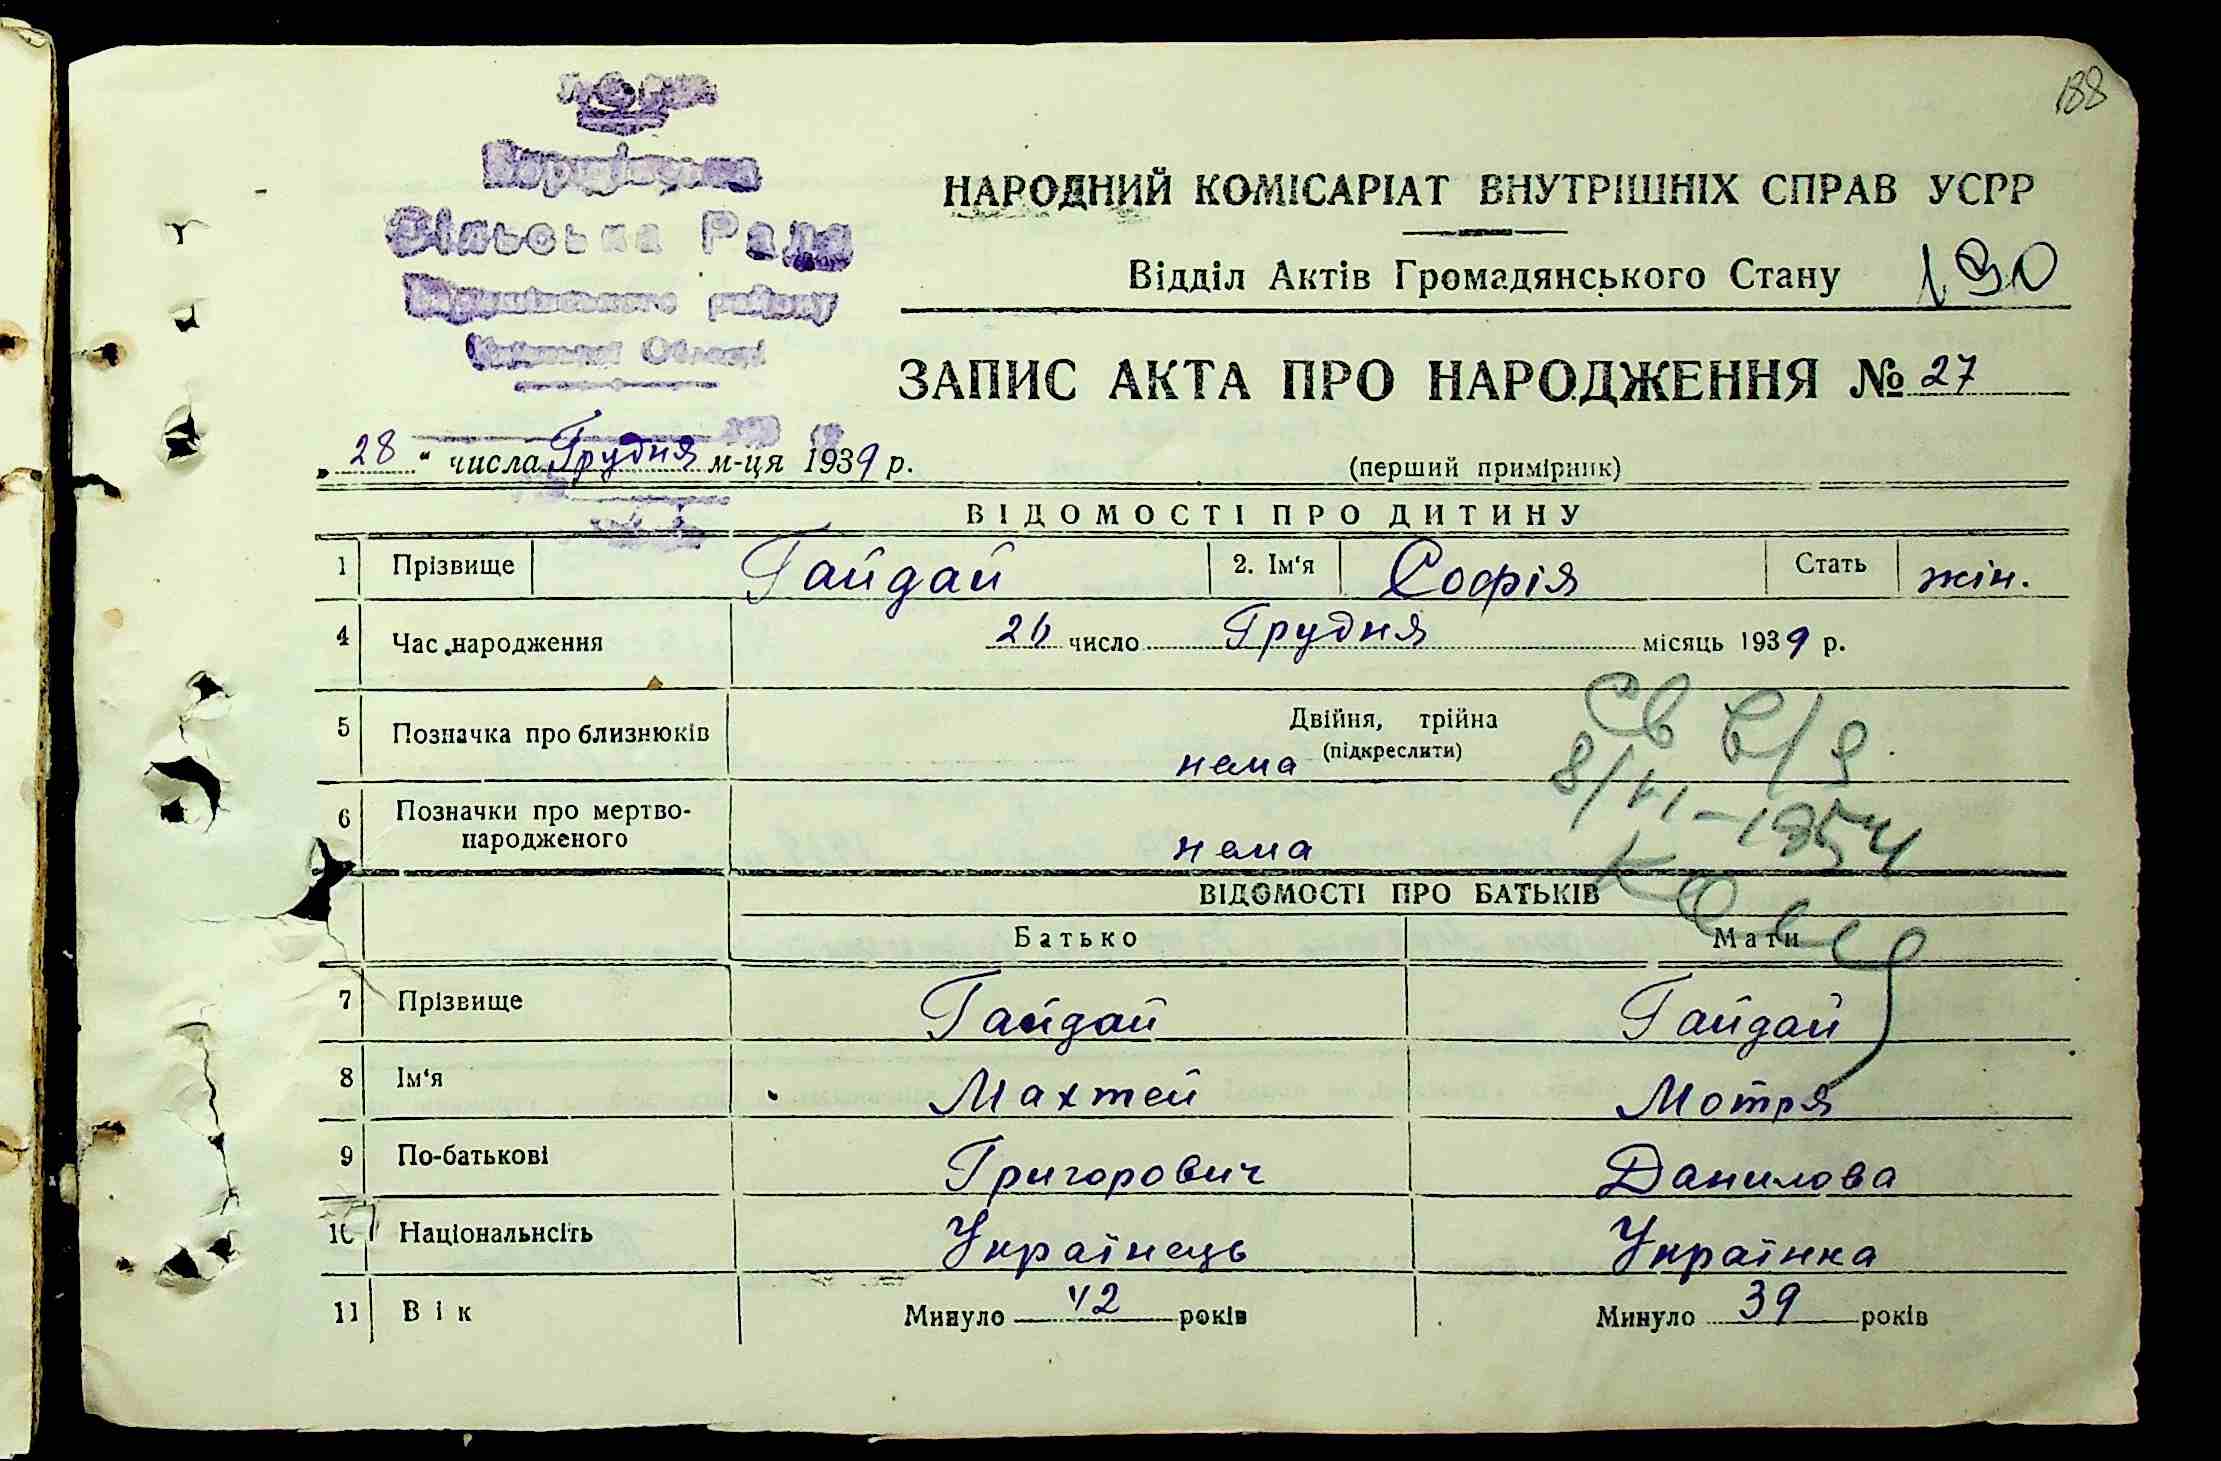 188
Сільська Рада
району
Київської Області
НАРОДНИЙ КОМІСАРІАТ ВНУТРІШНІХ СПРАВ УСРР
Відділ Актів Громадянського Стану 190
ЗАПИС АКТА ПРО НАРОДЖЕННЯ № 27
„28“ числа Грудня м-ця 1939 р.
(перший примірник)
ВІДОМОСТІ ПРО ДИТИНУ
1 Прізвище Гайдай 2. Ім‘я Софія Стать жін.
4 Час народження 26 число Грудня місяць 1939 р.
5 Позначка про близнюків Двійня, трійна
(підкреслити)
нема
6 Позначки про мертво-
народженого
нема
Св в/я
8/VI-1954
ВІДОМОСТІ ПРО БАТЬКІВ
Батько Мати
7 Прізвище Гайдай Гайдай
8 Ім‘я Махтей Мотря
9 По-батькові Григорович Данилова
10 Національнсіть Українець Українка
11 Вік Минуло 42 років Минуло 39 років